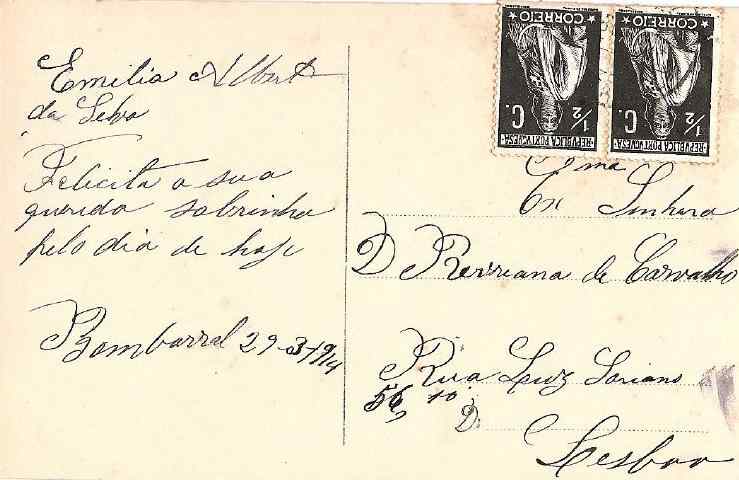 Emilia Albert
da Selva
Felicita a sua
querida sobrinha
pelo dia de hoje
Bombarral 29-3-1914
CORREIO
½ C.
REPUBLICA PORTUGUESA
CORREIO
½ C.
REPUBLICA PORTUGUESA
Exma
Senhora
D de Carvalho
Rua Luz Soriano
56, 1º D.
Lesboa